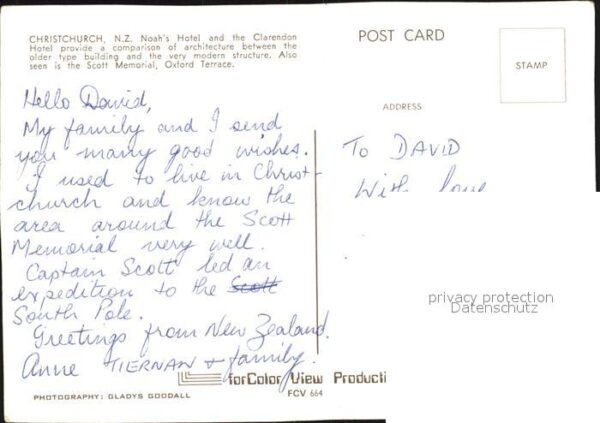 CHRISTCHURCH, N.Z. Noah's Hotel and the Clarendon
Hotel provide a comparison of architecture between the
older type building and the very modern structure. Also
seen is the Scott Memorial, Oxford Terrace.
Hello David,
My family and I send
you many good wishes.
I used to live in Christ-
church and know the
area around the Scott
Memorial very well.
Captain Scott led an
expedition to the Scott
South Pole.
Greetings from New Zealand.
Anne TIERNAN + family.
forColor View Producti
PHOTOGRAPHY: GLADYS GOODALL
FCV 664
POST CARD
STAMP
ADDRESS
To DAVID
With love
privacy protection
Datenschutz